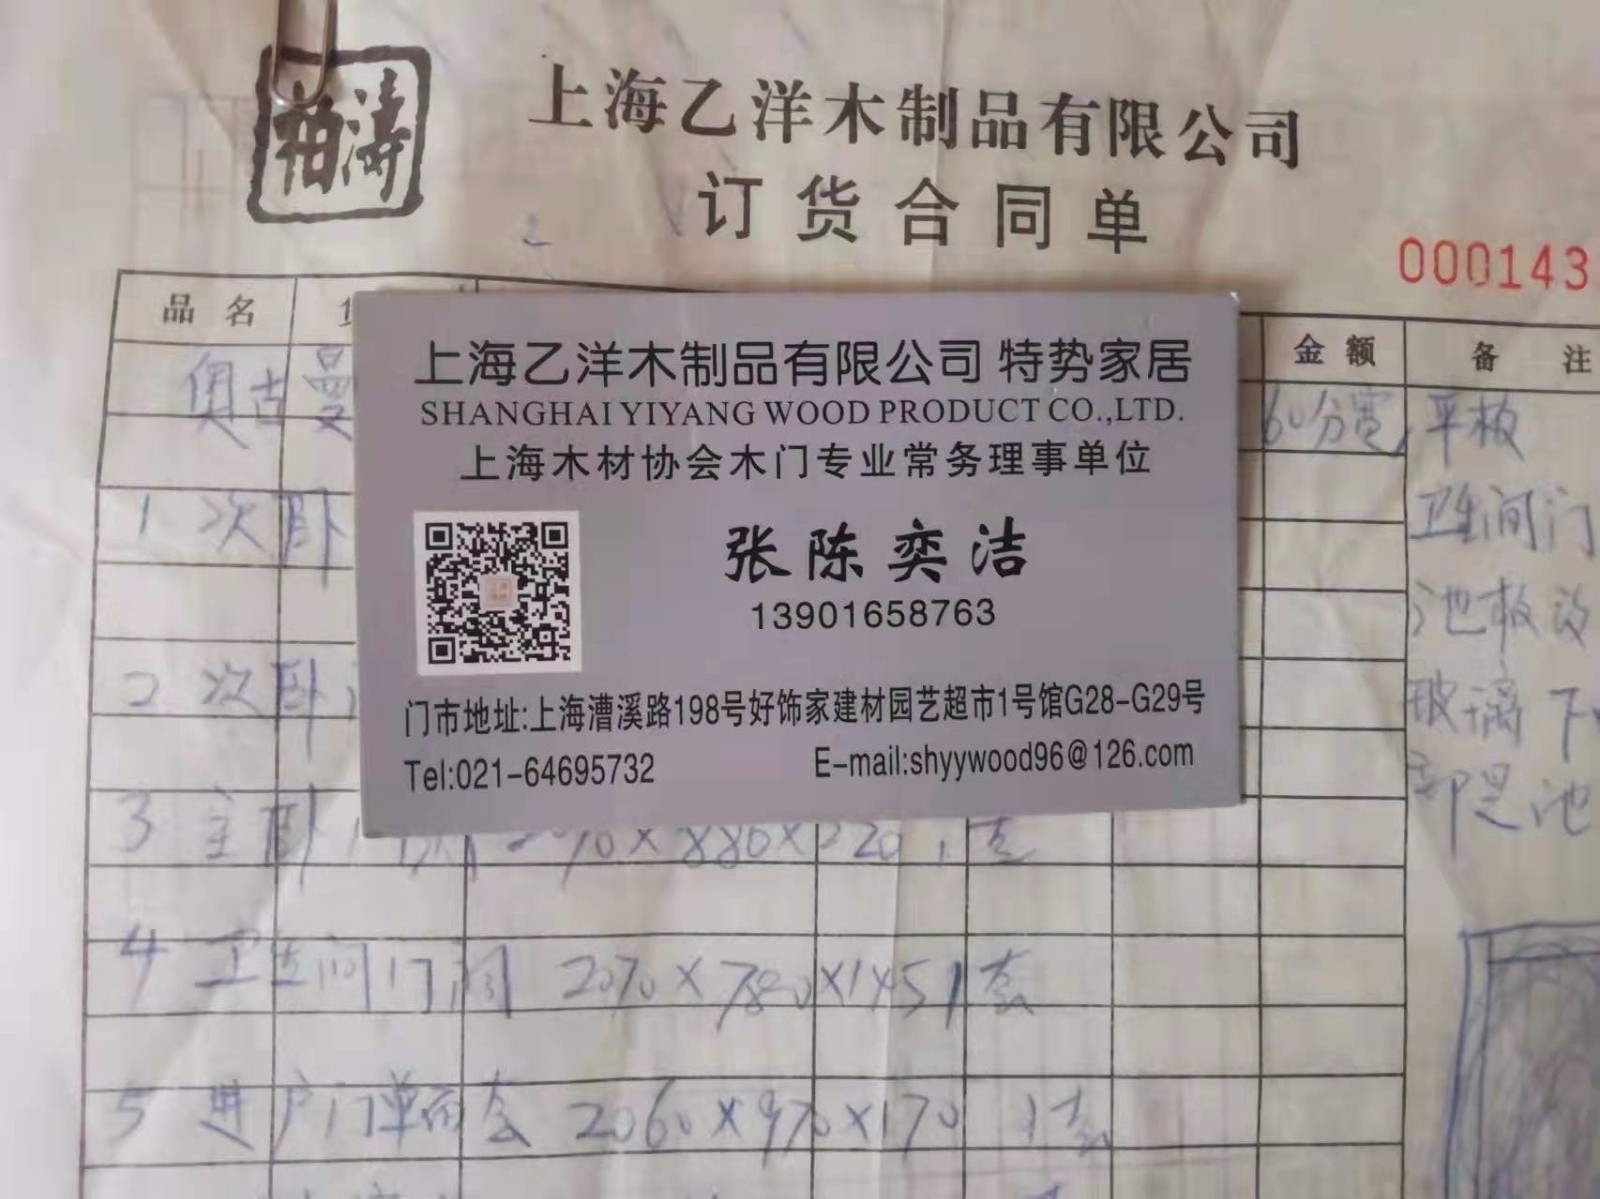 柏涛
上海乙洋木制品有限公司
订货合同单
000143
品名
金额
备注
奥古曼
60分宽,平板
上海乙洋木制品有限公司 特势家居
SHANGHAI YIYANG WOOD PRODUCT CO.,LTD.
上海木材协会木门专业常务理事单位
张陈奕洁
13901658763
门市地址:上海漕溪路198号好饰家建材园艺超市1号馆G28-G29号
Tel:021-64695732
E-mail:shyywood96@126.com
1 次卧
卫生间门
2 次卧
玻璃下
3 主卧
都是池
4 卫生间门 2070×780×145 1套
5 进户门单面套 2060×970×170 1套